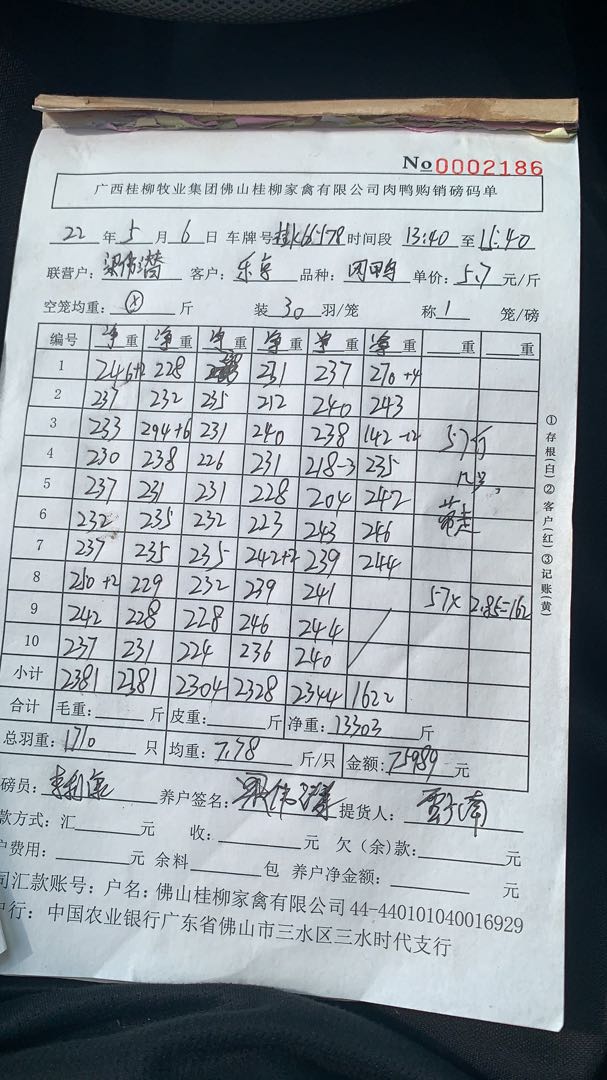 No 0002186
广西桂柳牧业集团佛山桂柳家禽有限公司肉鸭购销磅码单
22 年 5 月 6 日 车牌号 时间段 13:40 至 15:40
联营户: 客户: 乐享 品种: 单价: 5.7 元/斤
空笼均重: 斤 装 30 羽/笼 称 1 笼/磅
编号 净重 净重 净重 净重 净重 净重 重 重
1 246+2 228 231 237 270+4
2 237 232 235 212 240 243
3 233 294+6 231 240 238 142-12
4 230 238 226 231 218-3 235 57斤
5 237 231 231 228 204 242
6 232 235 232 223 243 246 带走
7 237 235 235 242+2 239 244
8 250+2 229 232 239 241 57× 2.85=162
9 242 228 228 246 244
10 237 231 224 236 240
小计 2381 2381 2304 2328 2344 1622
合计 毛重: 斤 皮重: 斤 净重: 13303 斤
总羽重: 1710 只 均重: 7.78 斤/只 金额: 75989 元
磅员: 养户签名: 提货人:
款方式: 汇 元 收: 元 欠(余)款: 元
户费用: 元 余料 包 养户净金额: 元
司汇款账号: 户名: 佛山桂柳家禽有限公司 44-440101040016929
户行: 中国农业银行广东省佛山市三水区三水时代支行
①存根(白)②客户(红)③记账(黄)